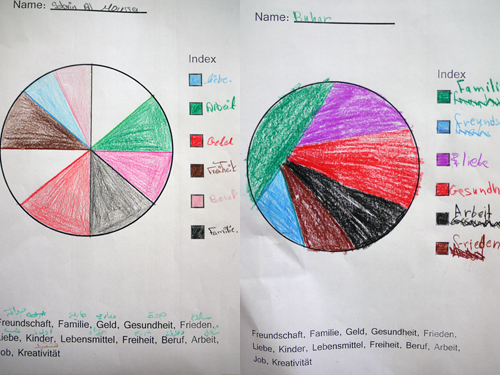 Name: Sabrin Al
Index
Liebe.
Arbeit
Geld
Freiheit
Beruf
Familie.
Freundschaft, Familie, Geld, Gesundheit, Frieden,
Liebe, Kinder, Lebensmittel, Freiheit, Beruf, Arbeit,
Job, Kreativität
Name: Buhar
Index
Familie
Freunds
Liebe
Gesundhe
Arbeit
Frieden
Freundschaft, Familie, Geld, Gesundheit, Frieden,
Liebe, Kinder, Lebensmittel, Freiheit, Beruf, Arbeit,
Job, Kreativität